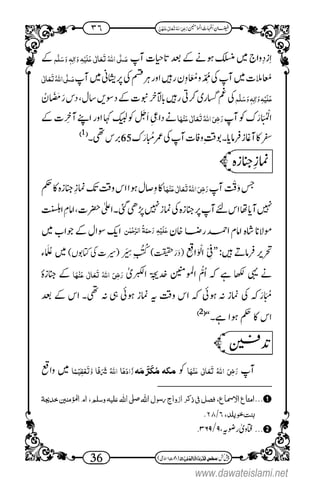 فیضانِ اُمَّہاتُ المؤمنین رَضِیَ اللہُ تَعَالٰی عَنْہُنَّ ۳٦
اِزدِواج میں منسلک ہونے کے بعد تاحیات آپ صَلَّی اللہُ تَعَالٰی عَلَیْہِ وَاٰلِہٖ وَسَلَّم کے
معاملات میں آپ کی مُمِد و مُعاوِن رہیں اور ہر قسم کی پریشانی میں آپ صَلَّی اللہُ تَعَالٰی
عَلَیْہِ وَاٰلِہٖ وَسَلَّم کی غم گساری کرتی رہیں بالآخر نبوت کے دسویں سال، دس رَمَضَانُ
الْمُبَارَک کو آپ رَضِیَ اللہُ تَعَالٰی عَنْہَا نے داعیِ اَجَل کو لبیک کہا اور اپنے آخرت کے
سفر کا آغاز فرمایا۔ بوقتِ وفات آپ کی عمر مُبارَک 65 برس تھی۔(1)
نمازِ جنازہ
جس وَقْت آپ رَضِیَ اللہُ تَعَالٰی عَنْہَا کا وصال ہوا اس وقت تک نمازِ جنازہ کا حکم
نہیں آیا تھا اس لئے آپ پر جنازہ کی نماز نہیں پڑھی گئی۔ اعلیٰ حضرت، امامِ اہلسنت
مولانا شاہ امام احمد رضا خان عَلَیْہِ رَحْمَۃُ الرَّحْمٰن ایک سوال کے جواب میں
تحریر فرماتے ہیں: ”فِی الْوَاقِع (درحقیقت) کُتُبِ سِیَر (سیرت کی کتابوں) میں عُلَماء
نے یہی لکھا ہے کہ اُمُّ المؤمنین خدیجۃ الکبریٰ رَضِیَ اللہُ تَعَالٰی عَنْہَا کے جنازۂ
مُبارَکہ کی نماز نہ ہوئی کہ اس وقت یہ نماز ہوئی ہی نہ تھی۔ اس کے بعد
اس کا حکم ہوا ہے۔“(2)
تدفین
آپ رَضِیَ اللہُ تَعَالٰی عَنْہَا کو مکہ مُکَرَّمَہ زَادَہَا اللہُ شَرَفًا وَّ تَعْظِیْمًا میں واقع
1...امتاع الاسماع، فصل فی ذکر ازواج رسول اللہ صلی اللہ علیہ وسلم، ام المؤمنین خدیجۃ
بنت خویلد، ۲۸/٦.
2...فتاویٰ رضویہ، ۳٦۹/۹.
36
www.dawateislami.net